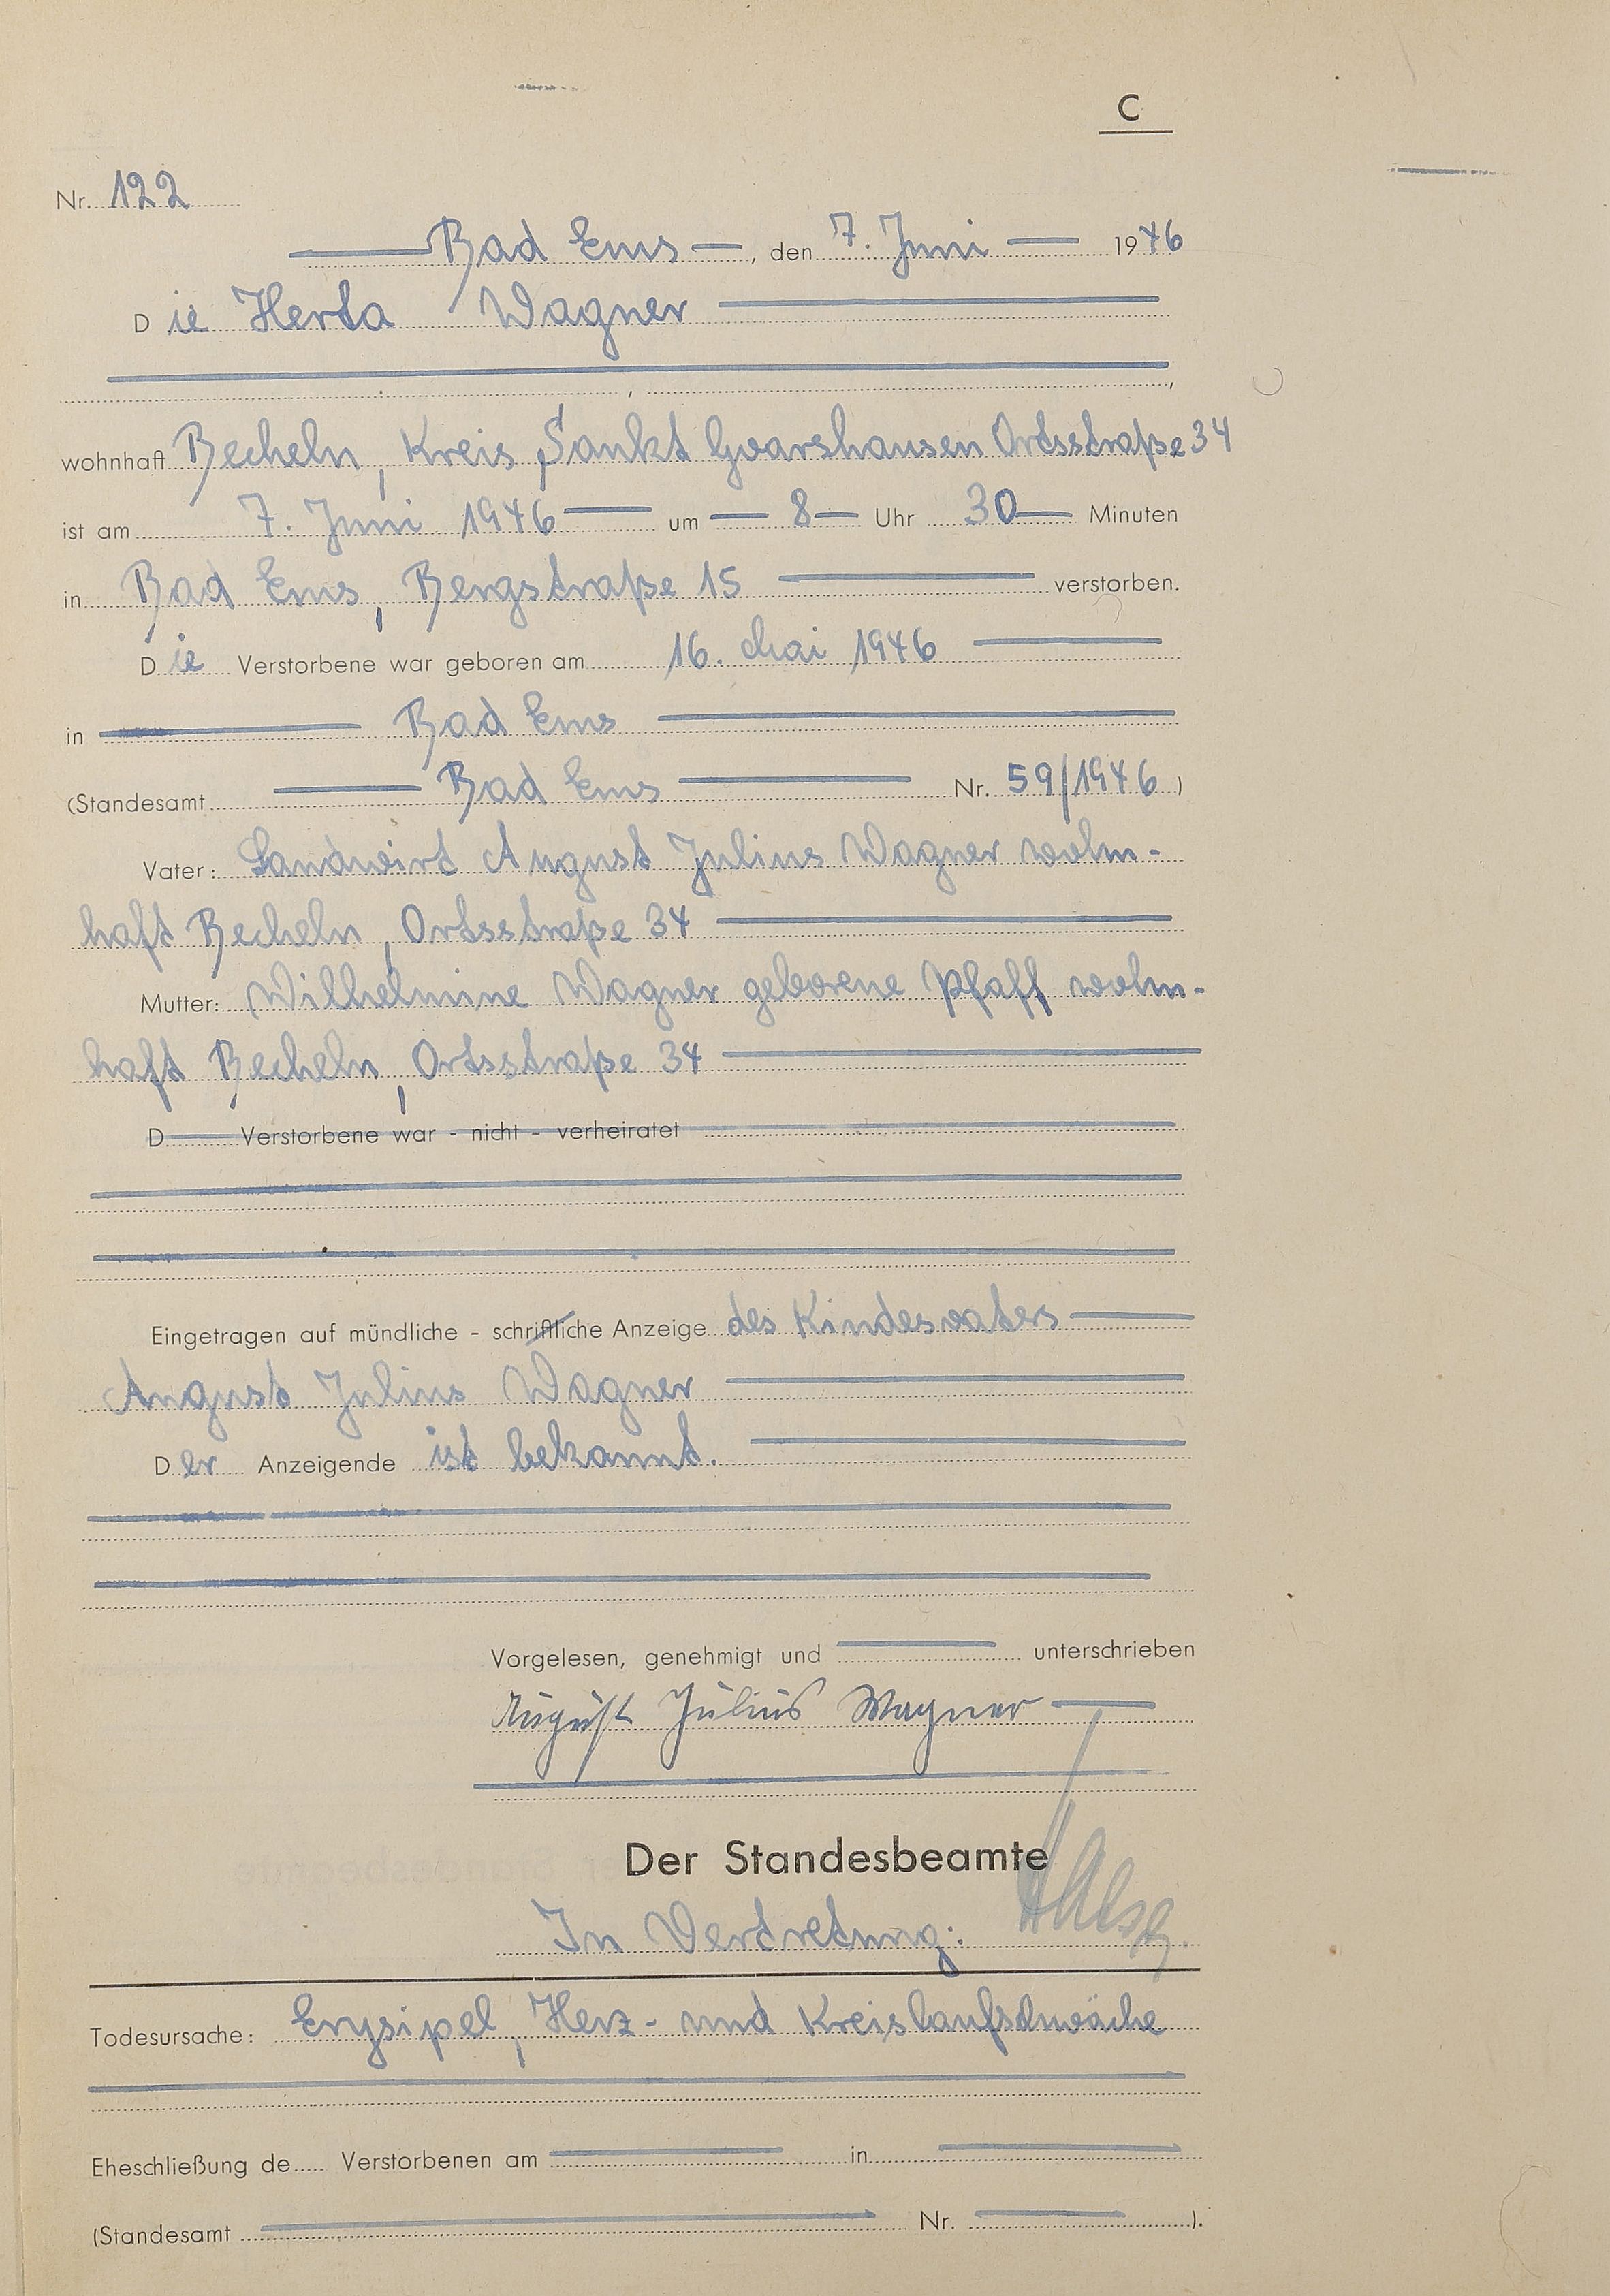 C
Nr. 122
Bad Ems, den 7. Juni 1946
Die Herta Wagner
wohnhaft Becheln, Kreis Sankt Goarshausen Ortsstraße 34
ist am 7. Juni 1946 um 8 Uhr 30 Minuten
in Bad Ems, Bergstraße 15 verstorben.
Die Verstorbene war geboren am 16. Mai 1946
in Bad Ems
(Standesamt Bad Ems Nr. 59/1946)
Vater: Landwirt August Julius Wagner wohn-
haft Becheln, Ortsstraße 34
Mutter: Wilhelmine Wagner geborene Pfaff wohn-
haft Becheln, Ortsstraße 34
D Verstorbene war - nicht - verheiratet
Eingetragen auf mündliche - schriftliche Anzeige des Kindesvaters
August Julius Wagner
Der Anzeigende ist bekannt.
Vorgelesen, genehmigt und unterschrieben
August Julius Wagner
Der Standesbeamte
In Vertretung:
Todesursache: Erysipel, Herz- und Kreislaufschwäche
Eheschließung de Verstorbenen am in
(Standesamt Nr. ).